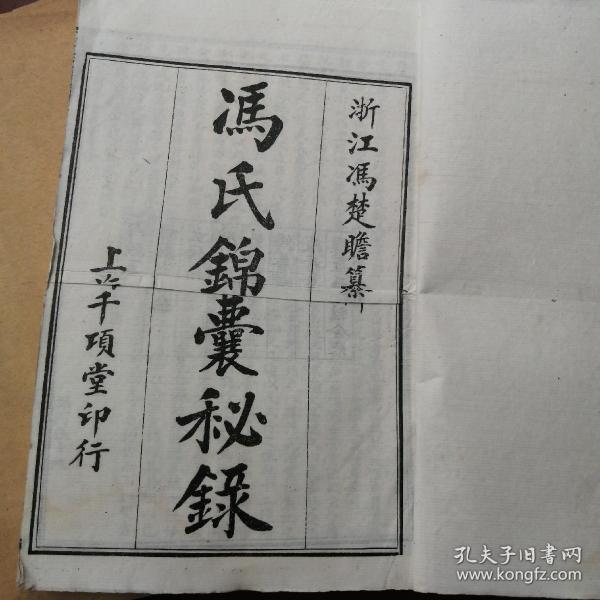 浙江馮楚瞻纂
馮氏錦囊秘錄
上海千頃堂印行
孔夫子旧书网
www.kongfz.com